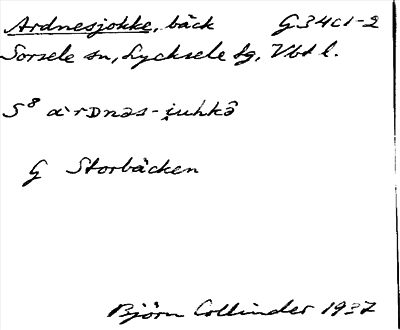 Ardnesjokke, bäck G34c1-2
Sorsele sn, Lycksele lg, Vbt l.
S⁸ α·rDnəs-i̯uhkə̑
G Storbäcken
Björn Collinder 1937